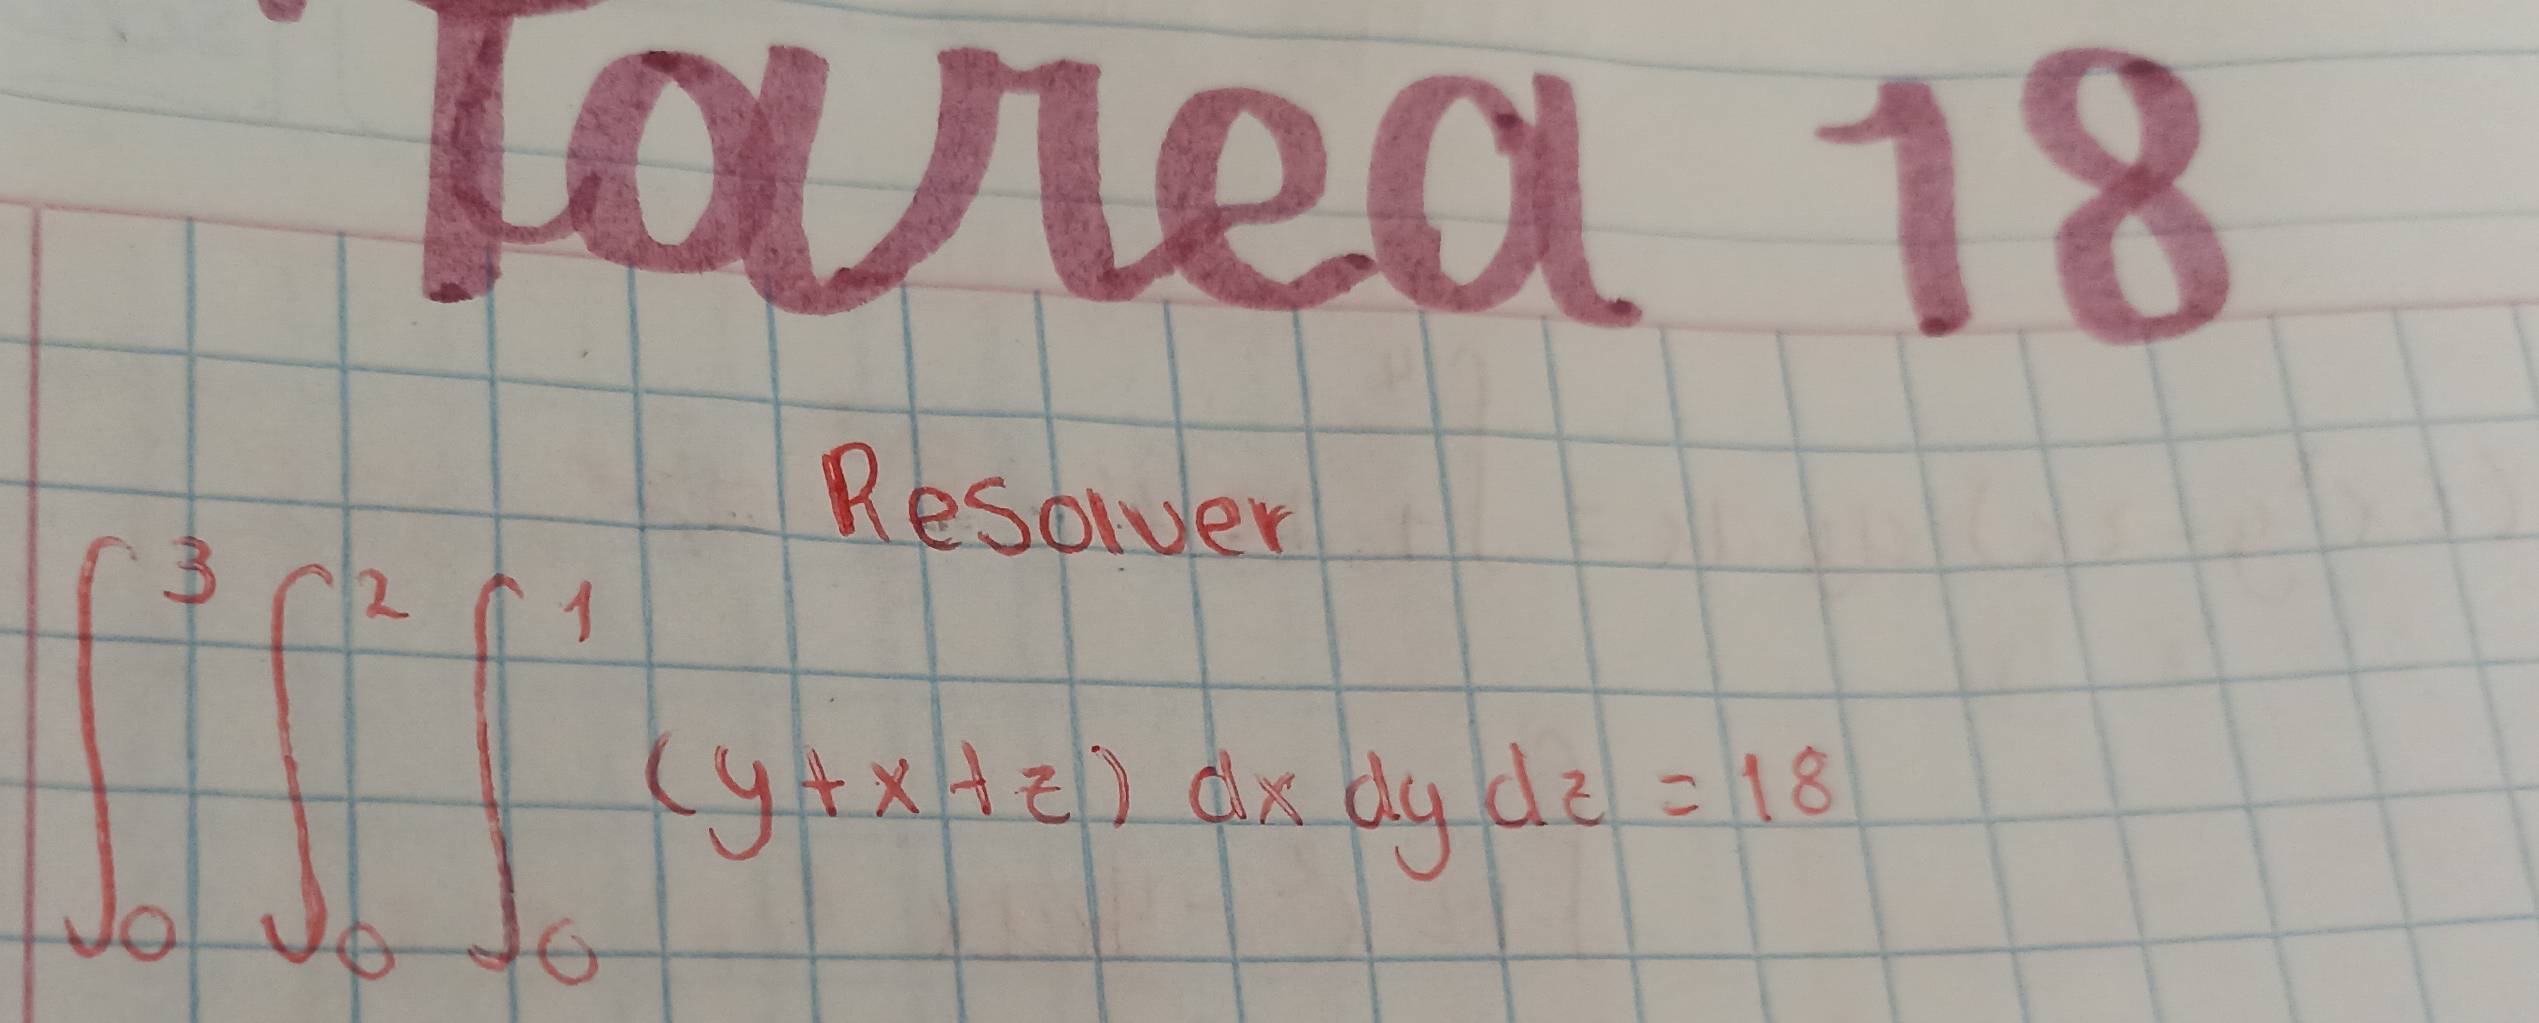 Tarea 18
Resolver
∫₀³ ∫₀² ∫₀¹ (y+x+z) dx dy dz = 18